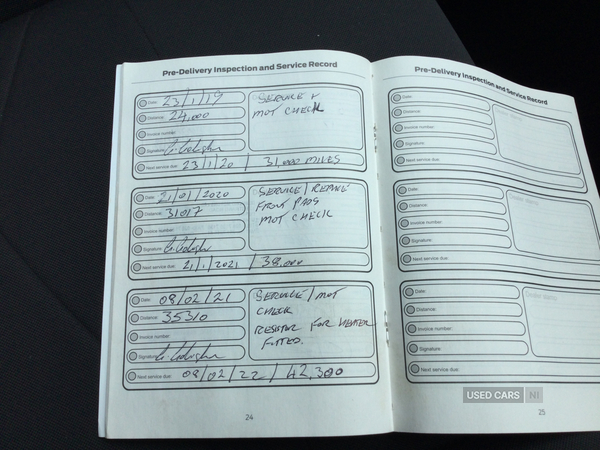 Pre-Delivery Inspection and Service Record
Date: 23/1/19
Distance: 24,000
Invoice number:
Signature:
Next service due: 23/1/20 / 31,000 MILES
SERVICE +
MOT CHECK
Date: 21/01/2020
Distance: 31017
Invoice number:
Signature:
Next service due: 21/1/2021 / 38,000
SERVICE / REPLACE
FRONT PADS
MOT CHECK
Date: 08/02/21
Distance: 35310
Invoice number:
Signature:
Next service due: 08/02/22 / 42,300
SERVICE / MOT
CHECK
RESISTOR FOR HEATER
FITTED.
24
Pre-Delivery Inspection and Service Record
Date:
Distance:
Invoice number:
Signature:
Next service due:
Date:
Distance:
Invoice number:
Signature:
Next service due:
Date:
Distance:
Invoice number:
Signature:
Next service due:
25
USED CARS NI